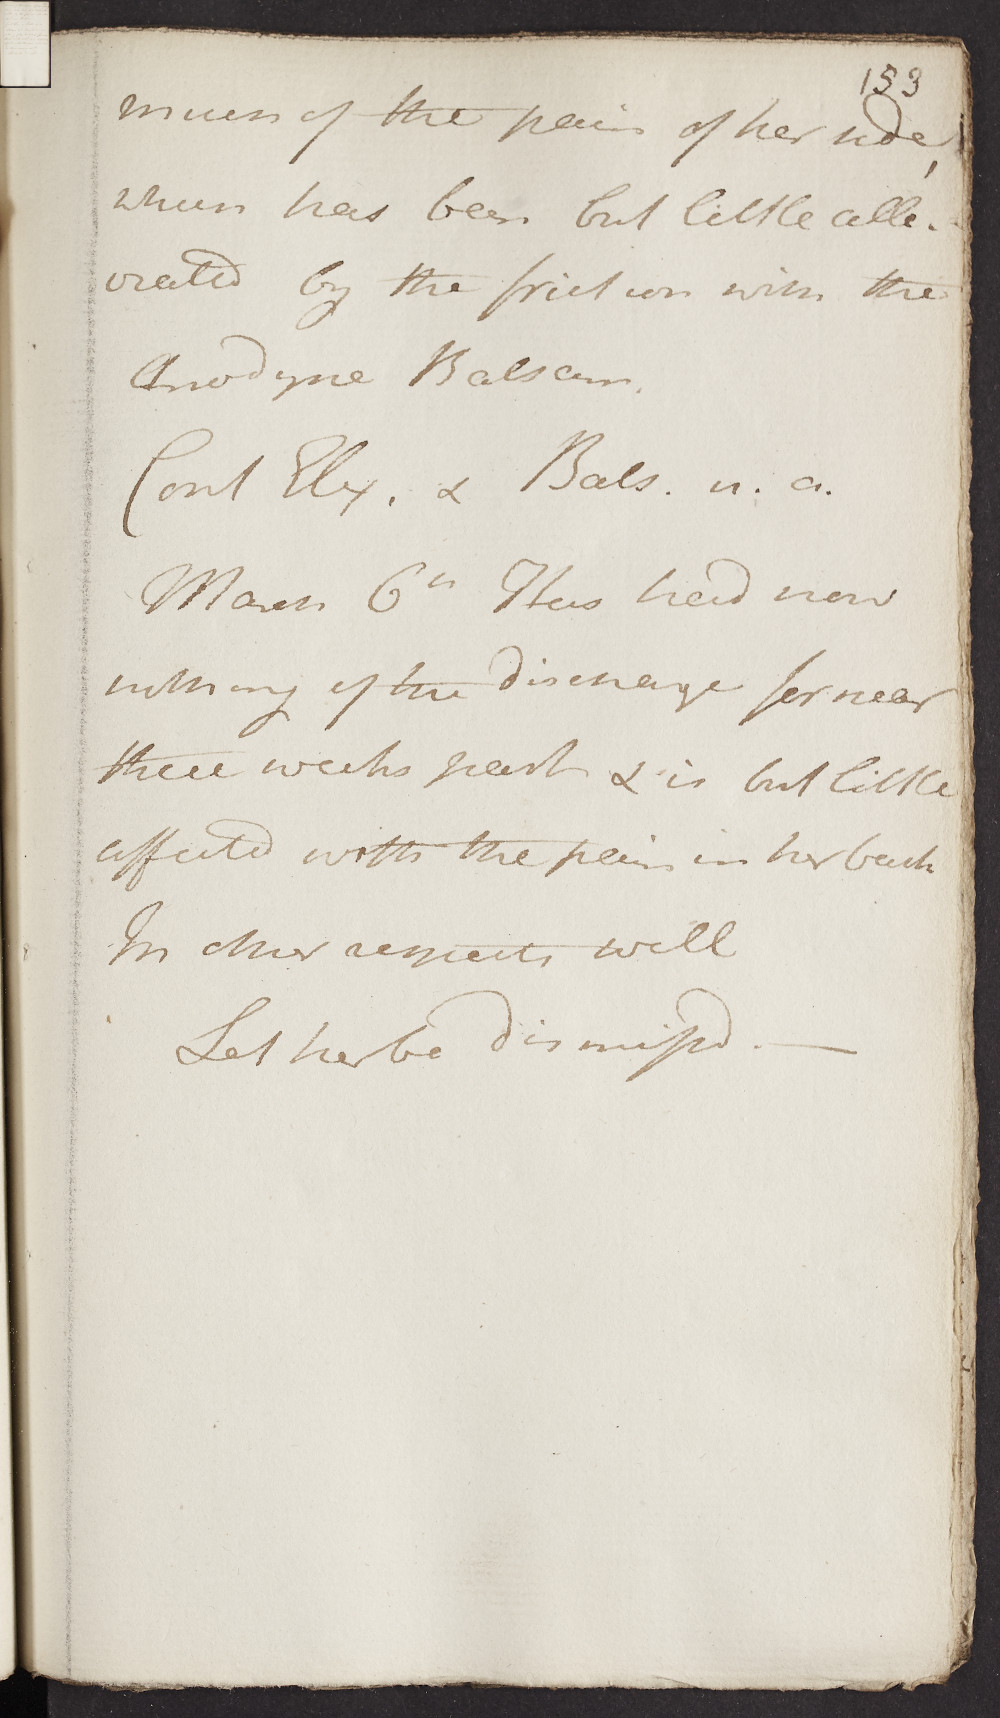 153
much of the pain of her side,
which has been but little alle-
viated by the friction with the
Anodyne Balsam.
Cont Elix. & Bals. u. a.
March 6th Has had now
nothing of the discharge for near
three weeks past & is but little
affected with the pain in her back
In other respects well
Let her be dismissd. —